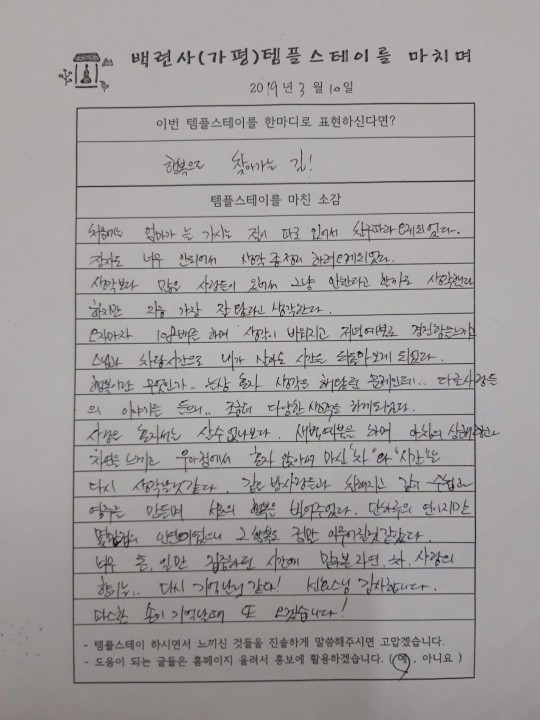 백련사(가평)템플스테이를 마치며
2019년 3월 10일
이번 템플스테이를 한마디로 표현하신다면?
행복으로 찾아가는 길!
템플스테이를 마친 소감
처음에는 엄마가 늘 가시는 절이 따로 있어서 친구따라 오게되었다.
잠자도 너무 안되어서 생각 정리 하려 오게되었다.
생각보다 많은 사람들이 있어서 그냥 안한다고 할까로 생각했다
하지만 지금 가장 잘 했다고 생각한다.
오자마자 108배를 하며 생각이 바뀌고 저녁예불로 경건함을 느끼고
스님과 차담시간으로 내가 살아온 시간을 되돌아보게 되었다.
행복이란 무엇인가.. 늘상 혼자 생각은 해답없는 문제인데.. 다른사람들
의 이야기를 들으니.. 좀더 다양한 생각을 하게되었다.
사람은 혼자서는 살수 없나보다. 새벽예불을 하며 아침의 상쾌함과
차분함을 느끼고 우아함에서 혼자 앉아서 마신 "차"와 "시간"은
다시 생각날것 같다. 같은 방사람들과 친해지고 같이 수다떨고
염주를 만들며 서로의 행복을 빌어주었다. 단 하루의 연이지만
몇 만겁의 인연이었으니 그 행복도 금방 이루어질것 같았다.
너무 좋은, 일만 집중하던 시간에 맛봐본 자연, 차, 사랑의
향기는.. 다시 기억날것 같다! 스님 감사합니다.
따스한 손이 기억날때 또 오겠습니다!
- 템플스테이 하시면서 느끼신 것들을 진솔하게 말씀해주시면 고맙겠습니다.
- 도움이 되는 글들은 홈페이지 올려서 홍보에 활용하겠습니다. ( 예 , 아니요 )